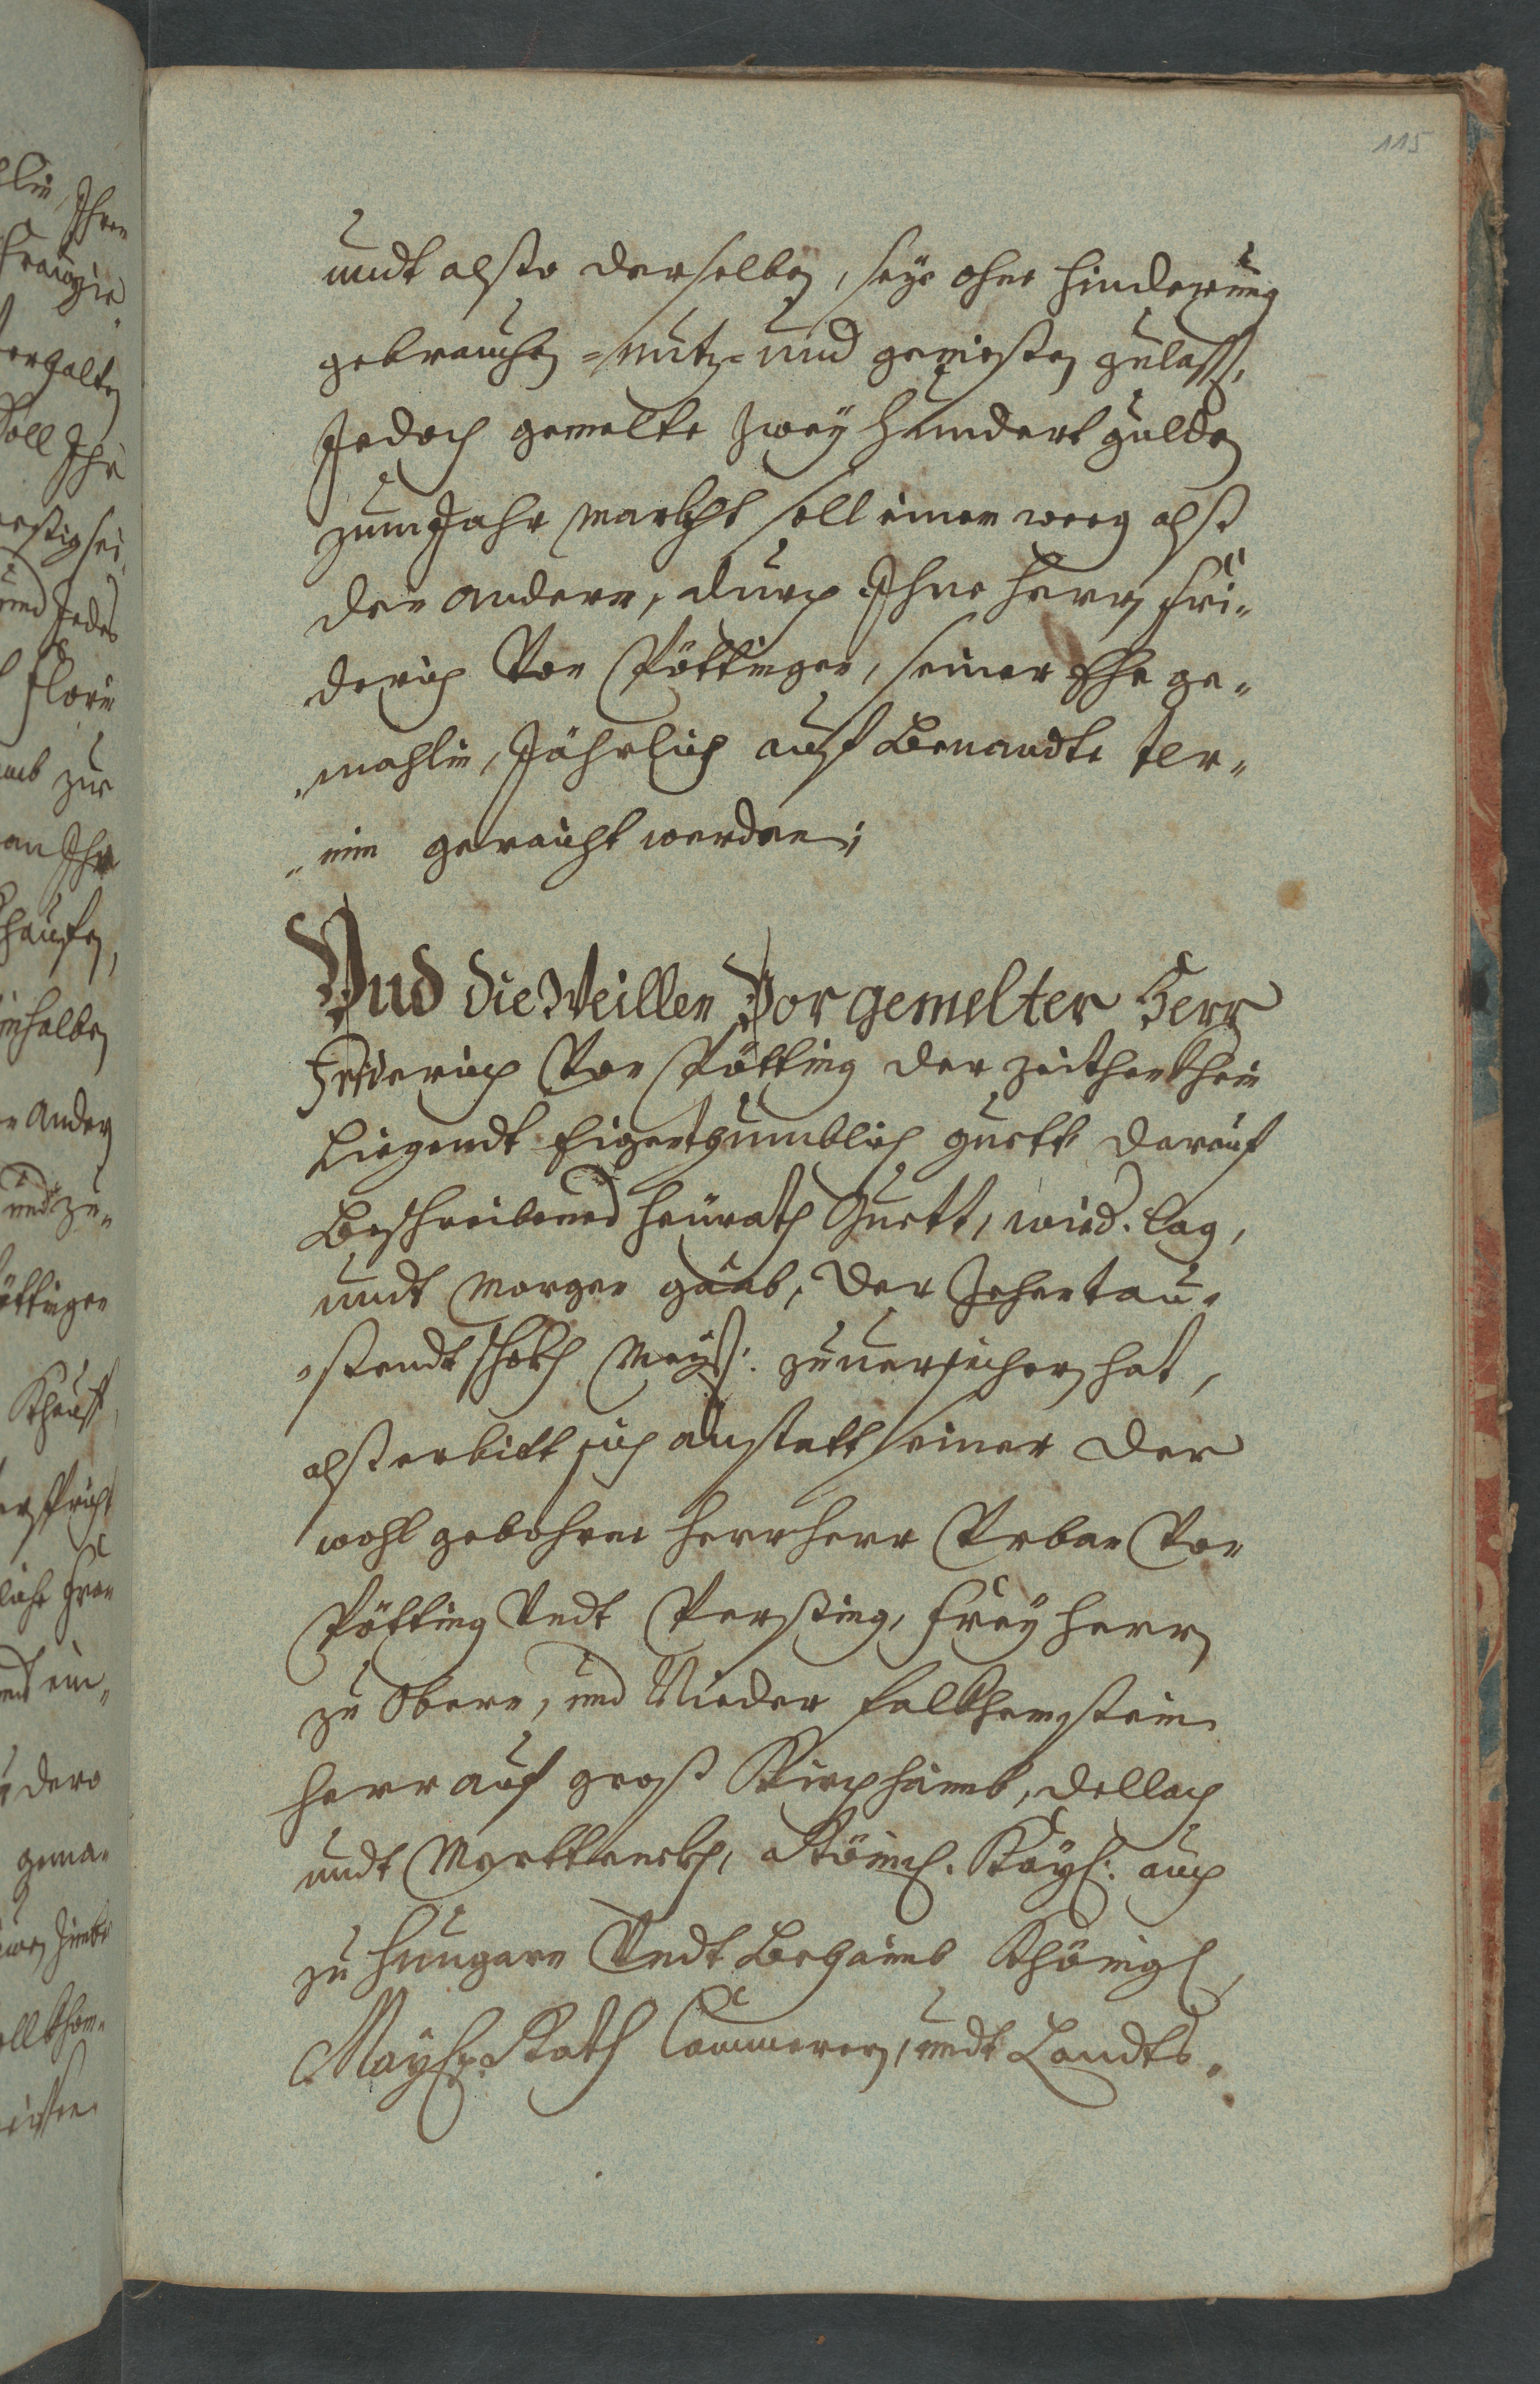 115
undt alßo derselben, seye ohne hinderung
gebrauchen =nutz= und genießen zulassen,
Jedoch gemelte zwey hundert gulden
zum Jahr marckht soll einen weeg alß
den andern, durch Ihne herrn Fri„
derich Von Pöttingen, seiner Ehe ge„
„mahlin, Jährlich auf benandte ter„
„min geraicht werden;
Vnd die Weillen Vor gemelter Herr
Friderich Von Pötting der zeithen khein
Liegendt Eigenthumblich guett darauf
beschreibenes heürath Guett, wied. lag,
undt morgen gaab, der Zehentau„
„sendt schokh Meyß: zuuersichern hat,
alß erbitt sich anstatt seiner der
wohl gebohrne herr herr Vrban Von
Pötting Vndt Perßing, Frey herr
zu Obern, und Nieder Falkhenstein
herr auf groß Kirchhaimb, dellach
undt Römich. Kayl: auch
zu Hungarn Vndt Behaimb Khönigl,
Mayst: Rath Cammerer, undt Landts„